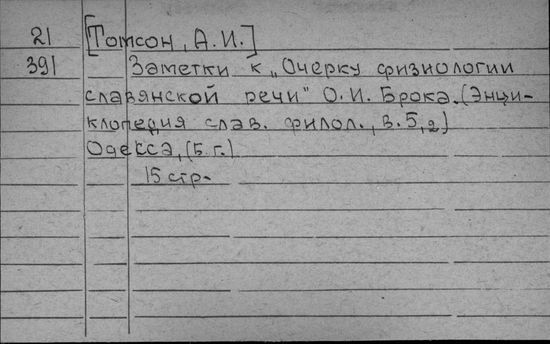 21 [Томсон, А.И.]
391 Заметки к „Очерку физиологии
славянской речи" О.И. Брока. (Энци-
клопедия слав. филол., в. 5,2)
Одесса, (б.г.)
15 стр.